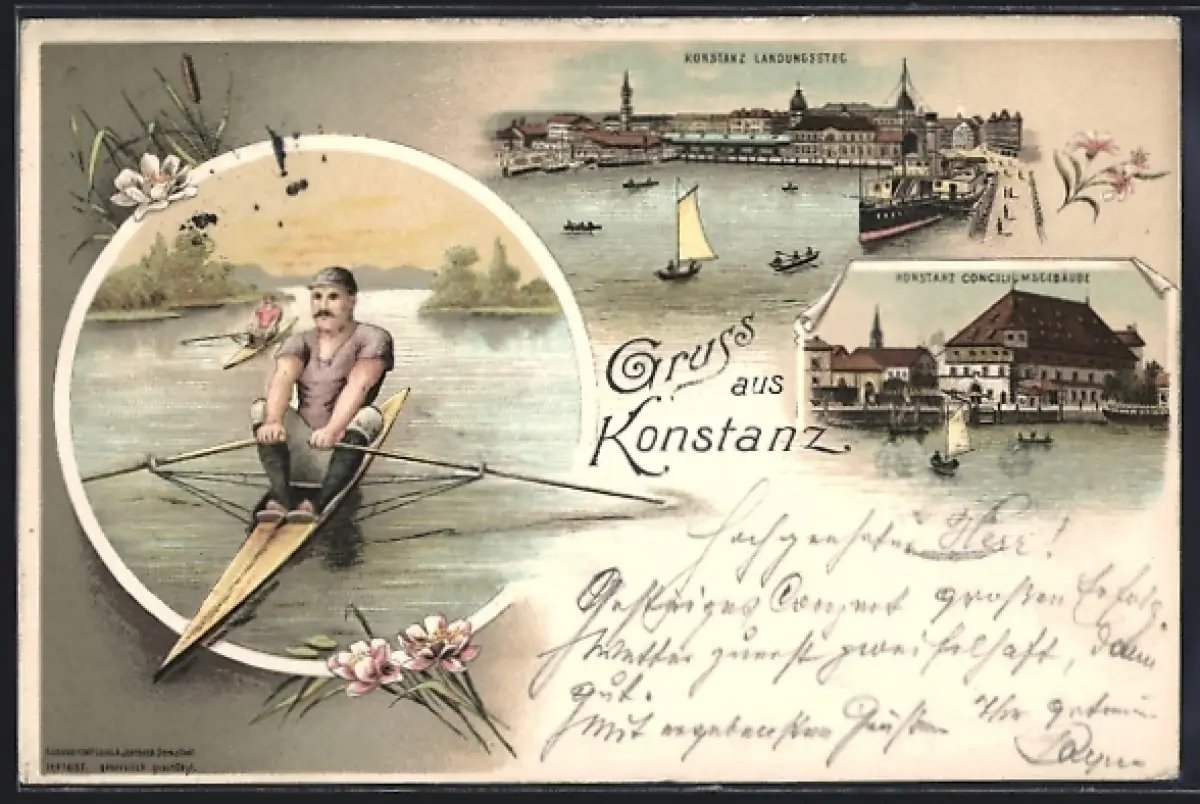 KONSTANZ LANDUNGSSTEG
KONSTANZ CONCILIUMSGEBÄUDE
Gruss
aus
Konstanz.
Hochgeehrter Herr!
Gestriges Conzert großen Erfolg.
Wetter zuerst zweifelhaft, dann
gut.
Mit ergebensten Grüßen Ihr getreuer
gesetzlich geschützt.